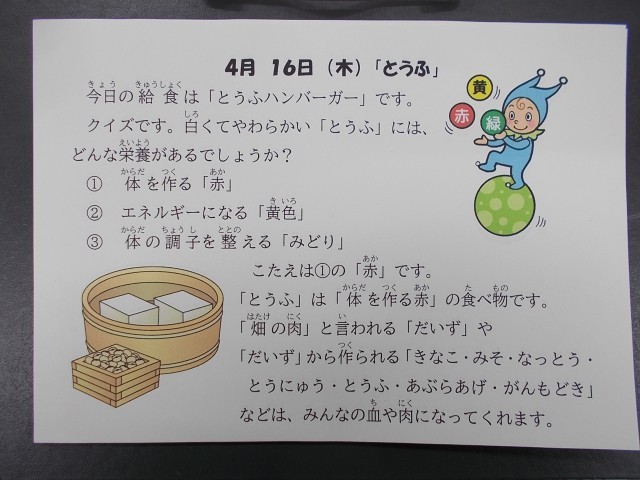 4月 16日（木）「とうふ」
今日の給食は「とうふハンバーガー」です。
クイズです。白くてやわらかい「とうふ」には、
どんな栄養があるでしょうか？
① 体を作る「赤」
② エネルギーになる「黄色」
③ 体の調子を整える「みどり」
こたえは①の「赤」です。
「とうふ」は「体を作る赤」の食べ物です。
「畑の肉」と言われる「だいず」や
「だいず」から作られる「きなこ・みそ・なっとう・
とうにゅう・とうふ・あぶらあげ・がんもどき」
などは、みんなの血や肉になってくれます。
黄
赤
緑